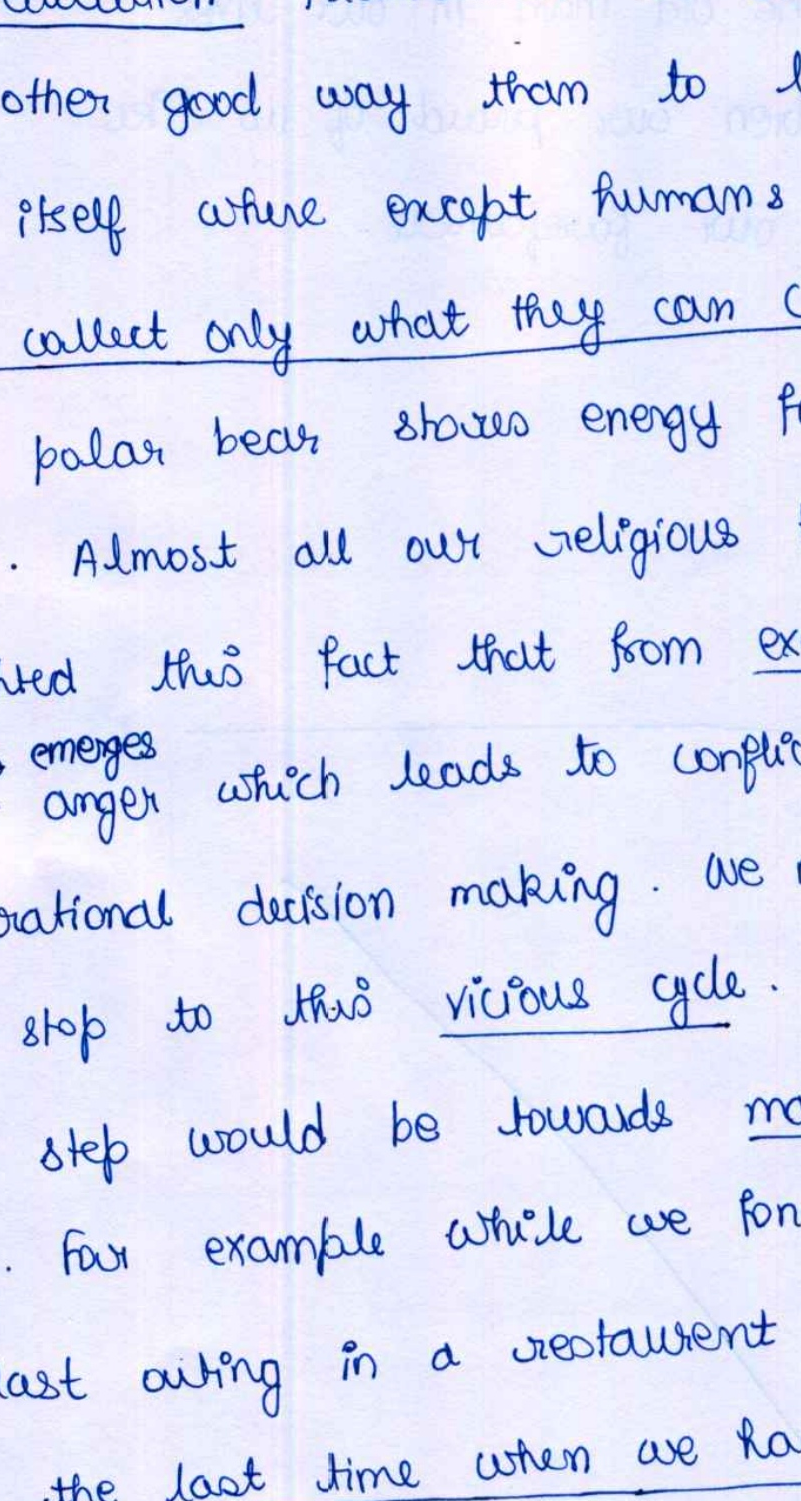 other good way than to
itself where except humans
collect only what they can
polar bear stores energy
. Almost all our religious
this fact that from ex
emerges
anger which leads to conflic
rational decision making. We
stop to this vicious cycle.
step would be towards mo
. For example while we fon
last outing in a restaurent
the last time when we ha